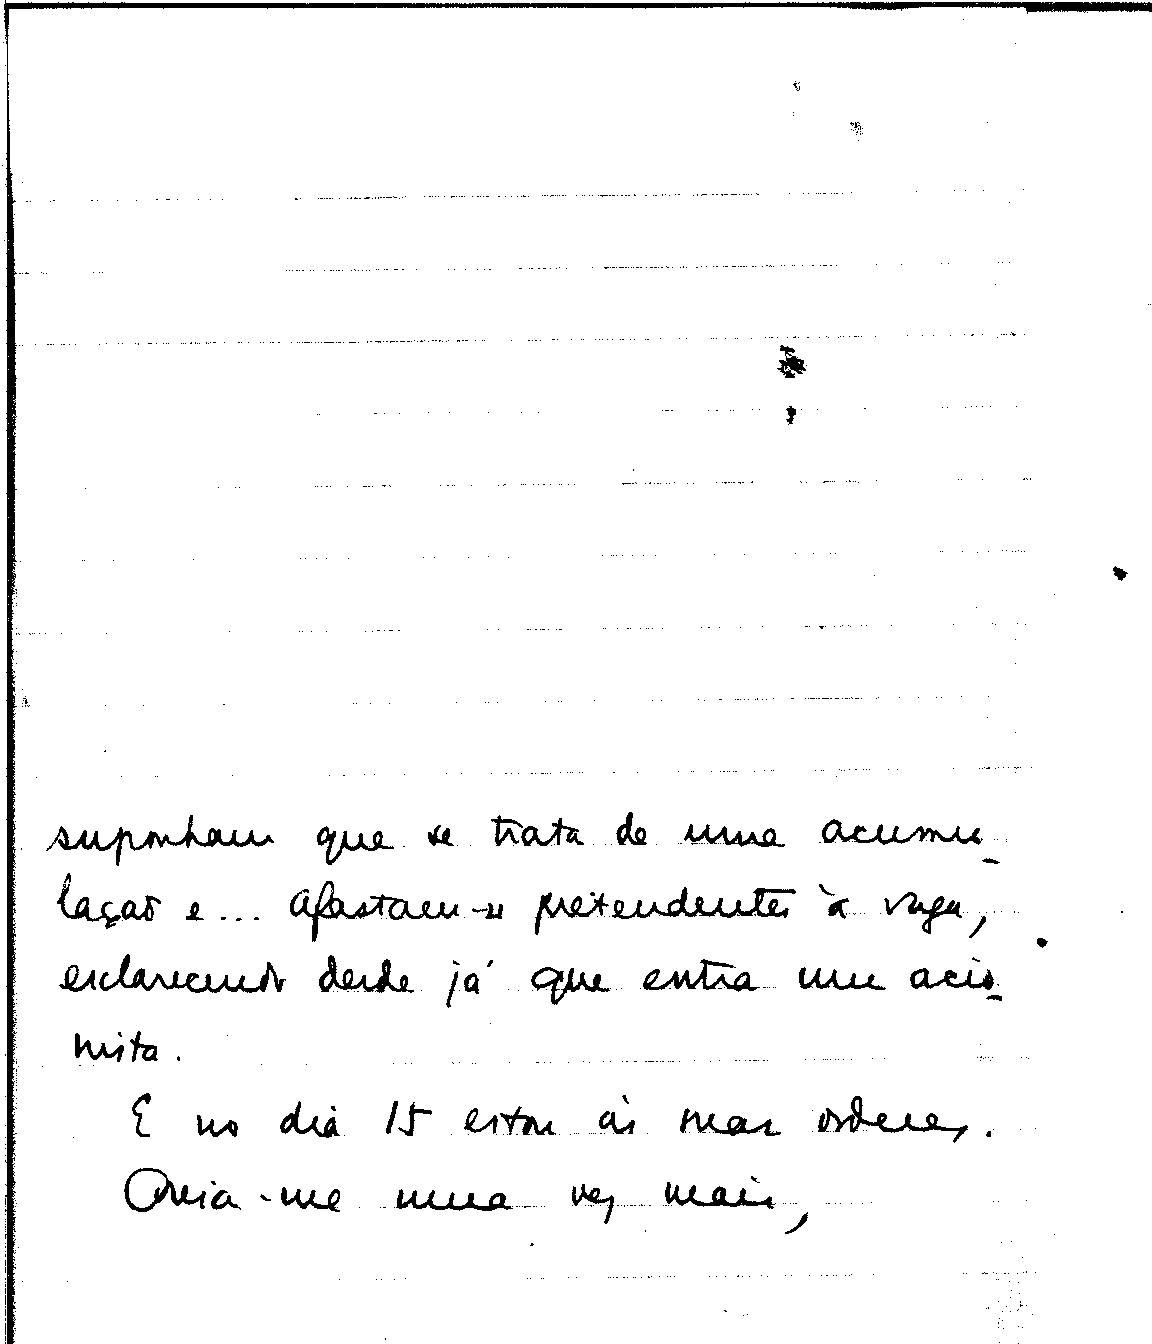 suponham que se trata de uma acumu-
lação e... afastam-se pretendentes à vaga,
esclarecendo desde já que entra um acio-
nista.
E no dia 15 estou às suas ordens.
Creia-me uma vez mais,